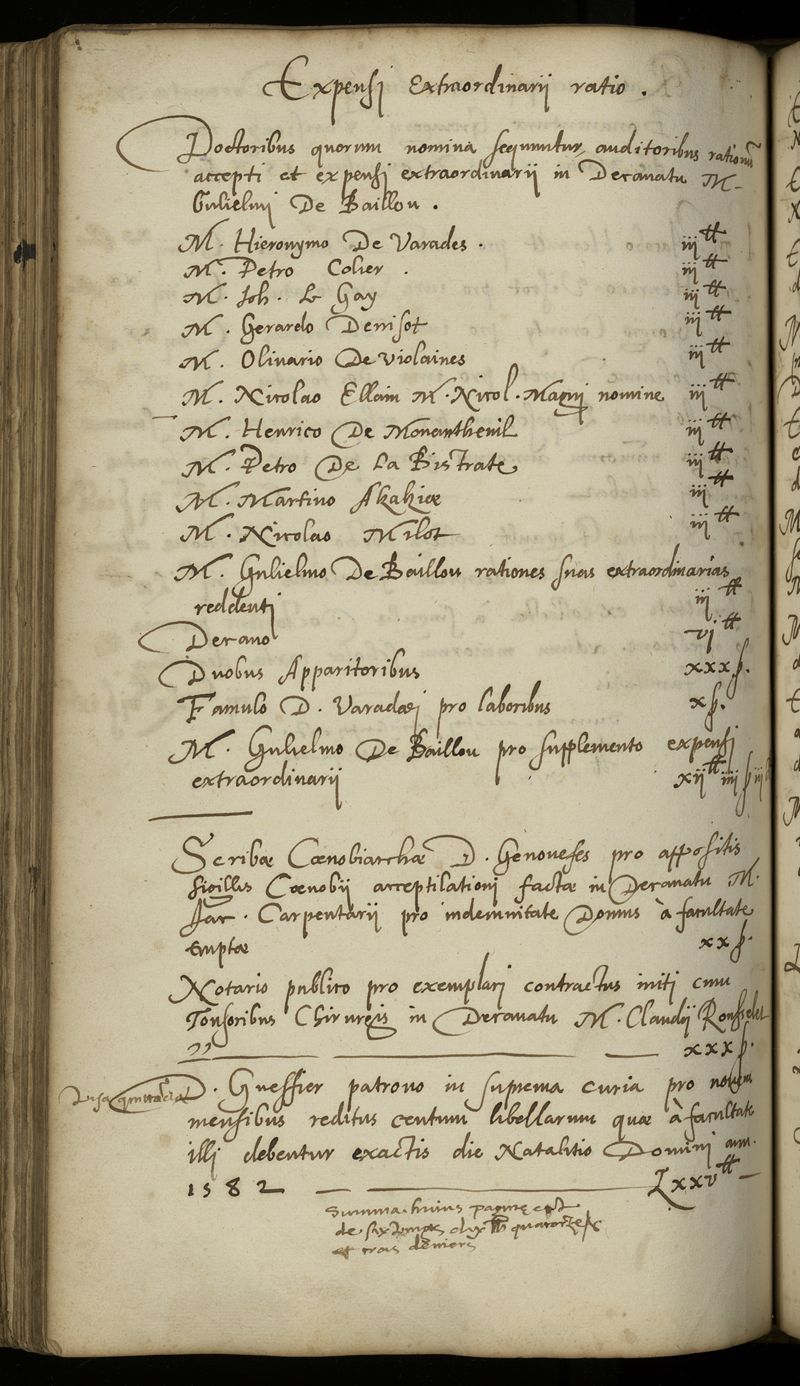 Expensi Extraordinarii ratio .
Doctoribus quorum nomina sequuntur auditoribus rationū
accepti et expensi extraordinarii in Decanatu M-
Gulielmi De Baillou .
M. Hieronymo De Varades . iij ₶
M. Petro Colier . iij ₶
M. Joh. Le Gay iij ₶
M. Gerardo Denisot iij ₶
M. Olivario De Violaines iij ₶
M. Nicolao Ellain M. Nicol. Magni nomine iij ₶
M. Henrico De Monantheuil iij ₶
M. Petro De La Bistrate iij ₶
M. Martino Akakiæ iij ₶
M. Nicolao Milot iij ₶
M. Gulielmo De Baillou rationes suas extraordinarias
reddenti iij ₶
Decano vj ₶
Duobus Apparitoribus xxx ß.
Famulo D. Varadæi pro laboribus x ß.
M. Gulielmo De Baillou pro supplemento expensi
extraordinarii xij ₶ iiij ß iij
Scribæ Cœnobiarchæ D. Genovefes pro appositis
sigillis Cœnobij acceptilationi factæ in Decanatu M.
Jac. Carpentarii pro indemnitate Domus à facultate
emptæ xx ß.
Notario publico pro exemplari contractus initi cum
Tonsoribus Chirurgis in Decanatu M. Claudij Rousselet
xxx ß.
D. Guessier patrono in suprema curia pro novem
mensibus reditus centum libellarum quæ à facultate
illi debentur exactis die Natalitio Domini ann.
1582 Lxxv ₶
Summa huius paginę est
de six vingts dix ₶ quatorze ß
et trois deniers